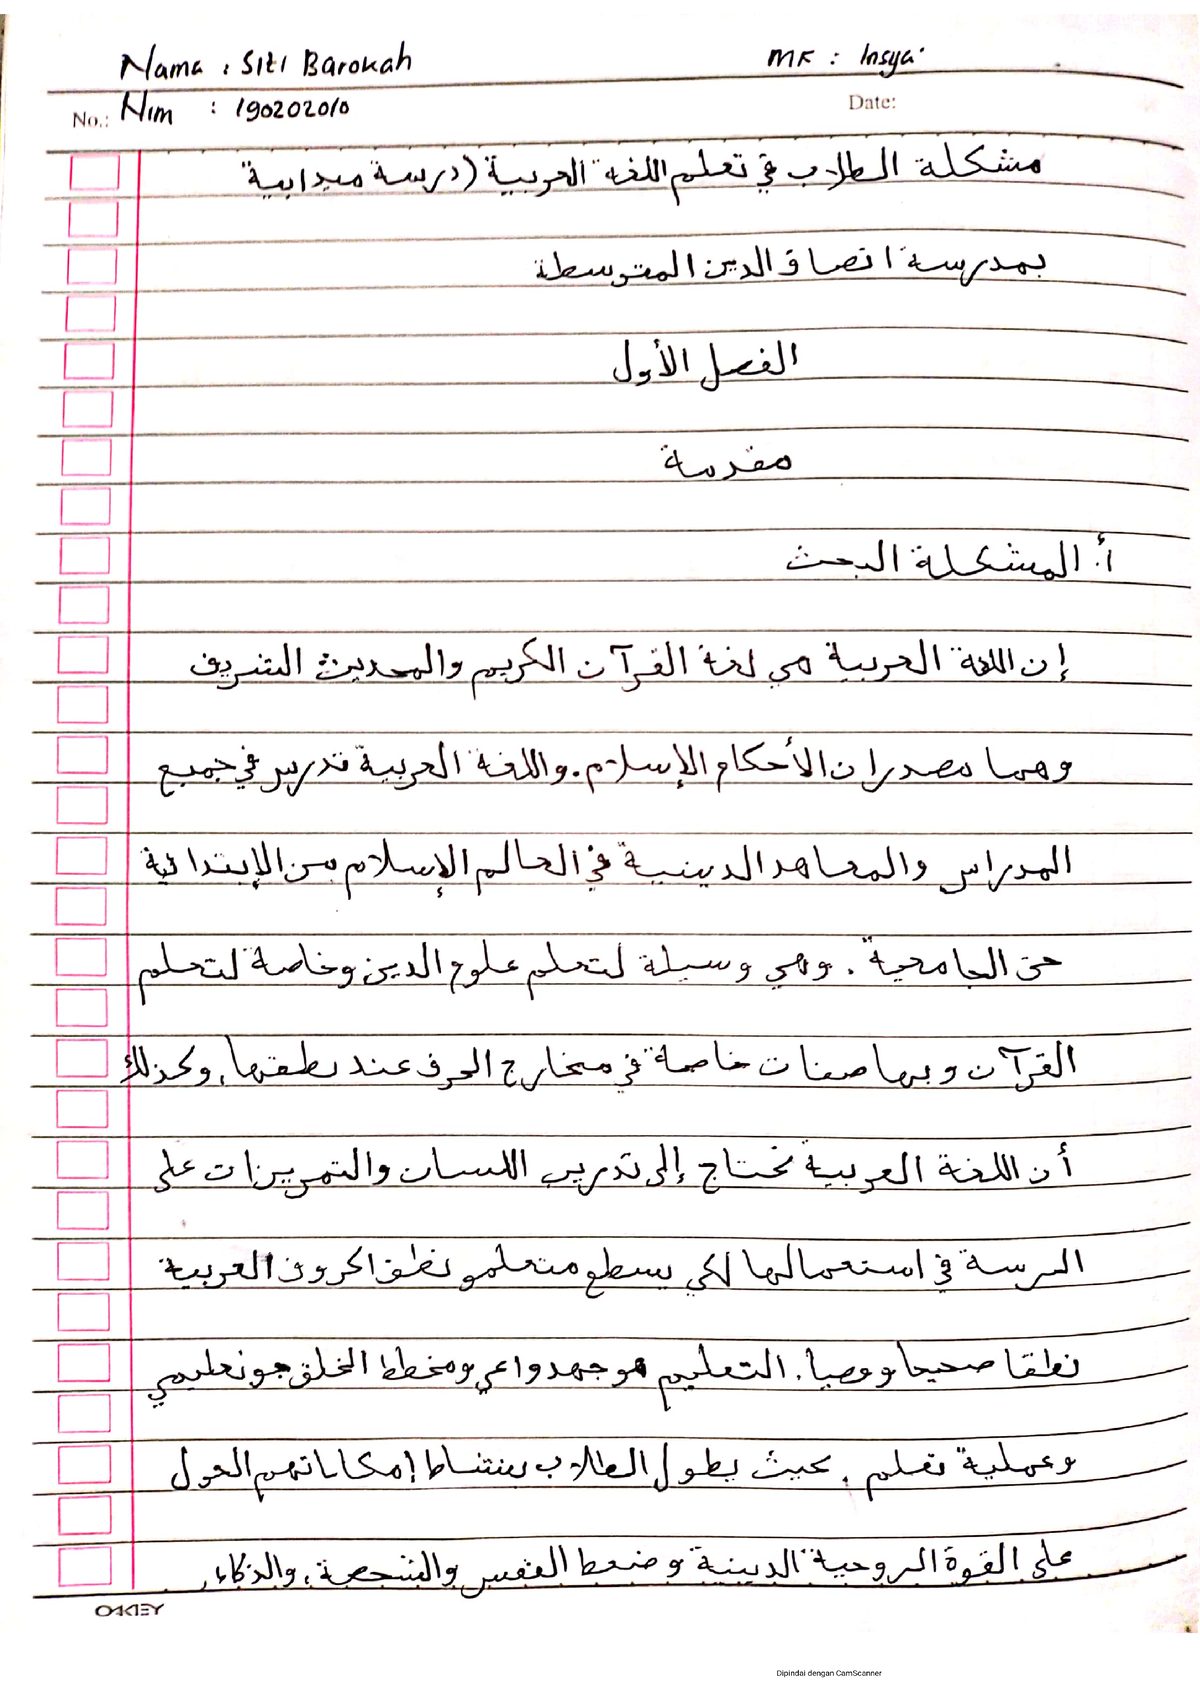 Nama : Siti Barokah
MK : Insya'
No.: Nim : 190202010
Date:
مشكلة الطلاب في تعلم اللغة العربية (درسة ميدابية
بمدرسة اتصاق الدين المتوسطة
الفصل الأول
مقدمة
أ. المشكلة البحث
إن اللغة العربية هي لغة القرآن الكريم والحديث الشريف
وهما مصدران الأحكام الإسلام. واللغة العربية تدرس في جميع
المدراس والمعاهد الدينية في العالم الإسلام من الإبتدائية
حتى الجامعية. وهي وسيلة لتعلم علوم الدين وخاصة لتعلم
القرآن وبها صفات خاصة في مخارج الحرف عند نطقها، وكذلك
أن اللغة العربية تحتاج إلى تدريب اللسان والتمرينات على
الدرسة في استعمالها لكي يسطع متعلمو نطق الحروف العربية
نطقا صحيحا و فصيا. التعليم هو جهد واعي ومخطط الخلق جو تعليمي
وعملية تعلم، بحيث يطول الطلاب بنشاط إمكاناتهم الحول
على القوة الروحية الدينية و ضبط النفس والشحصية، والذكاء،
OAKEY
Dipindai dengan CamScanner